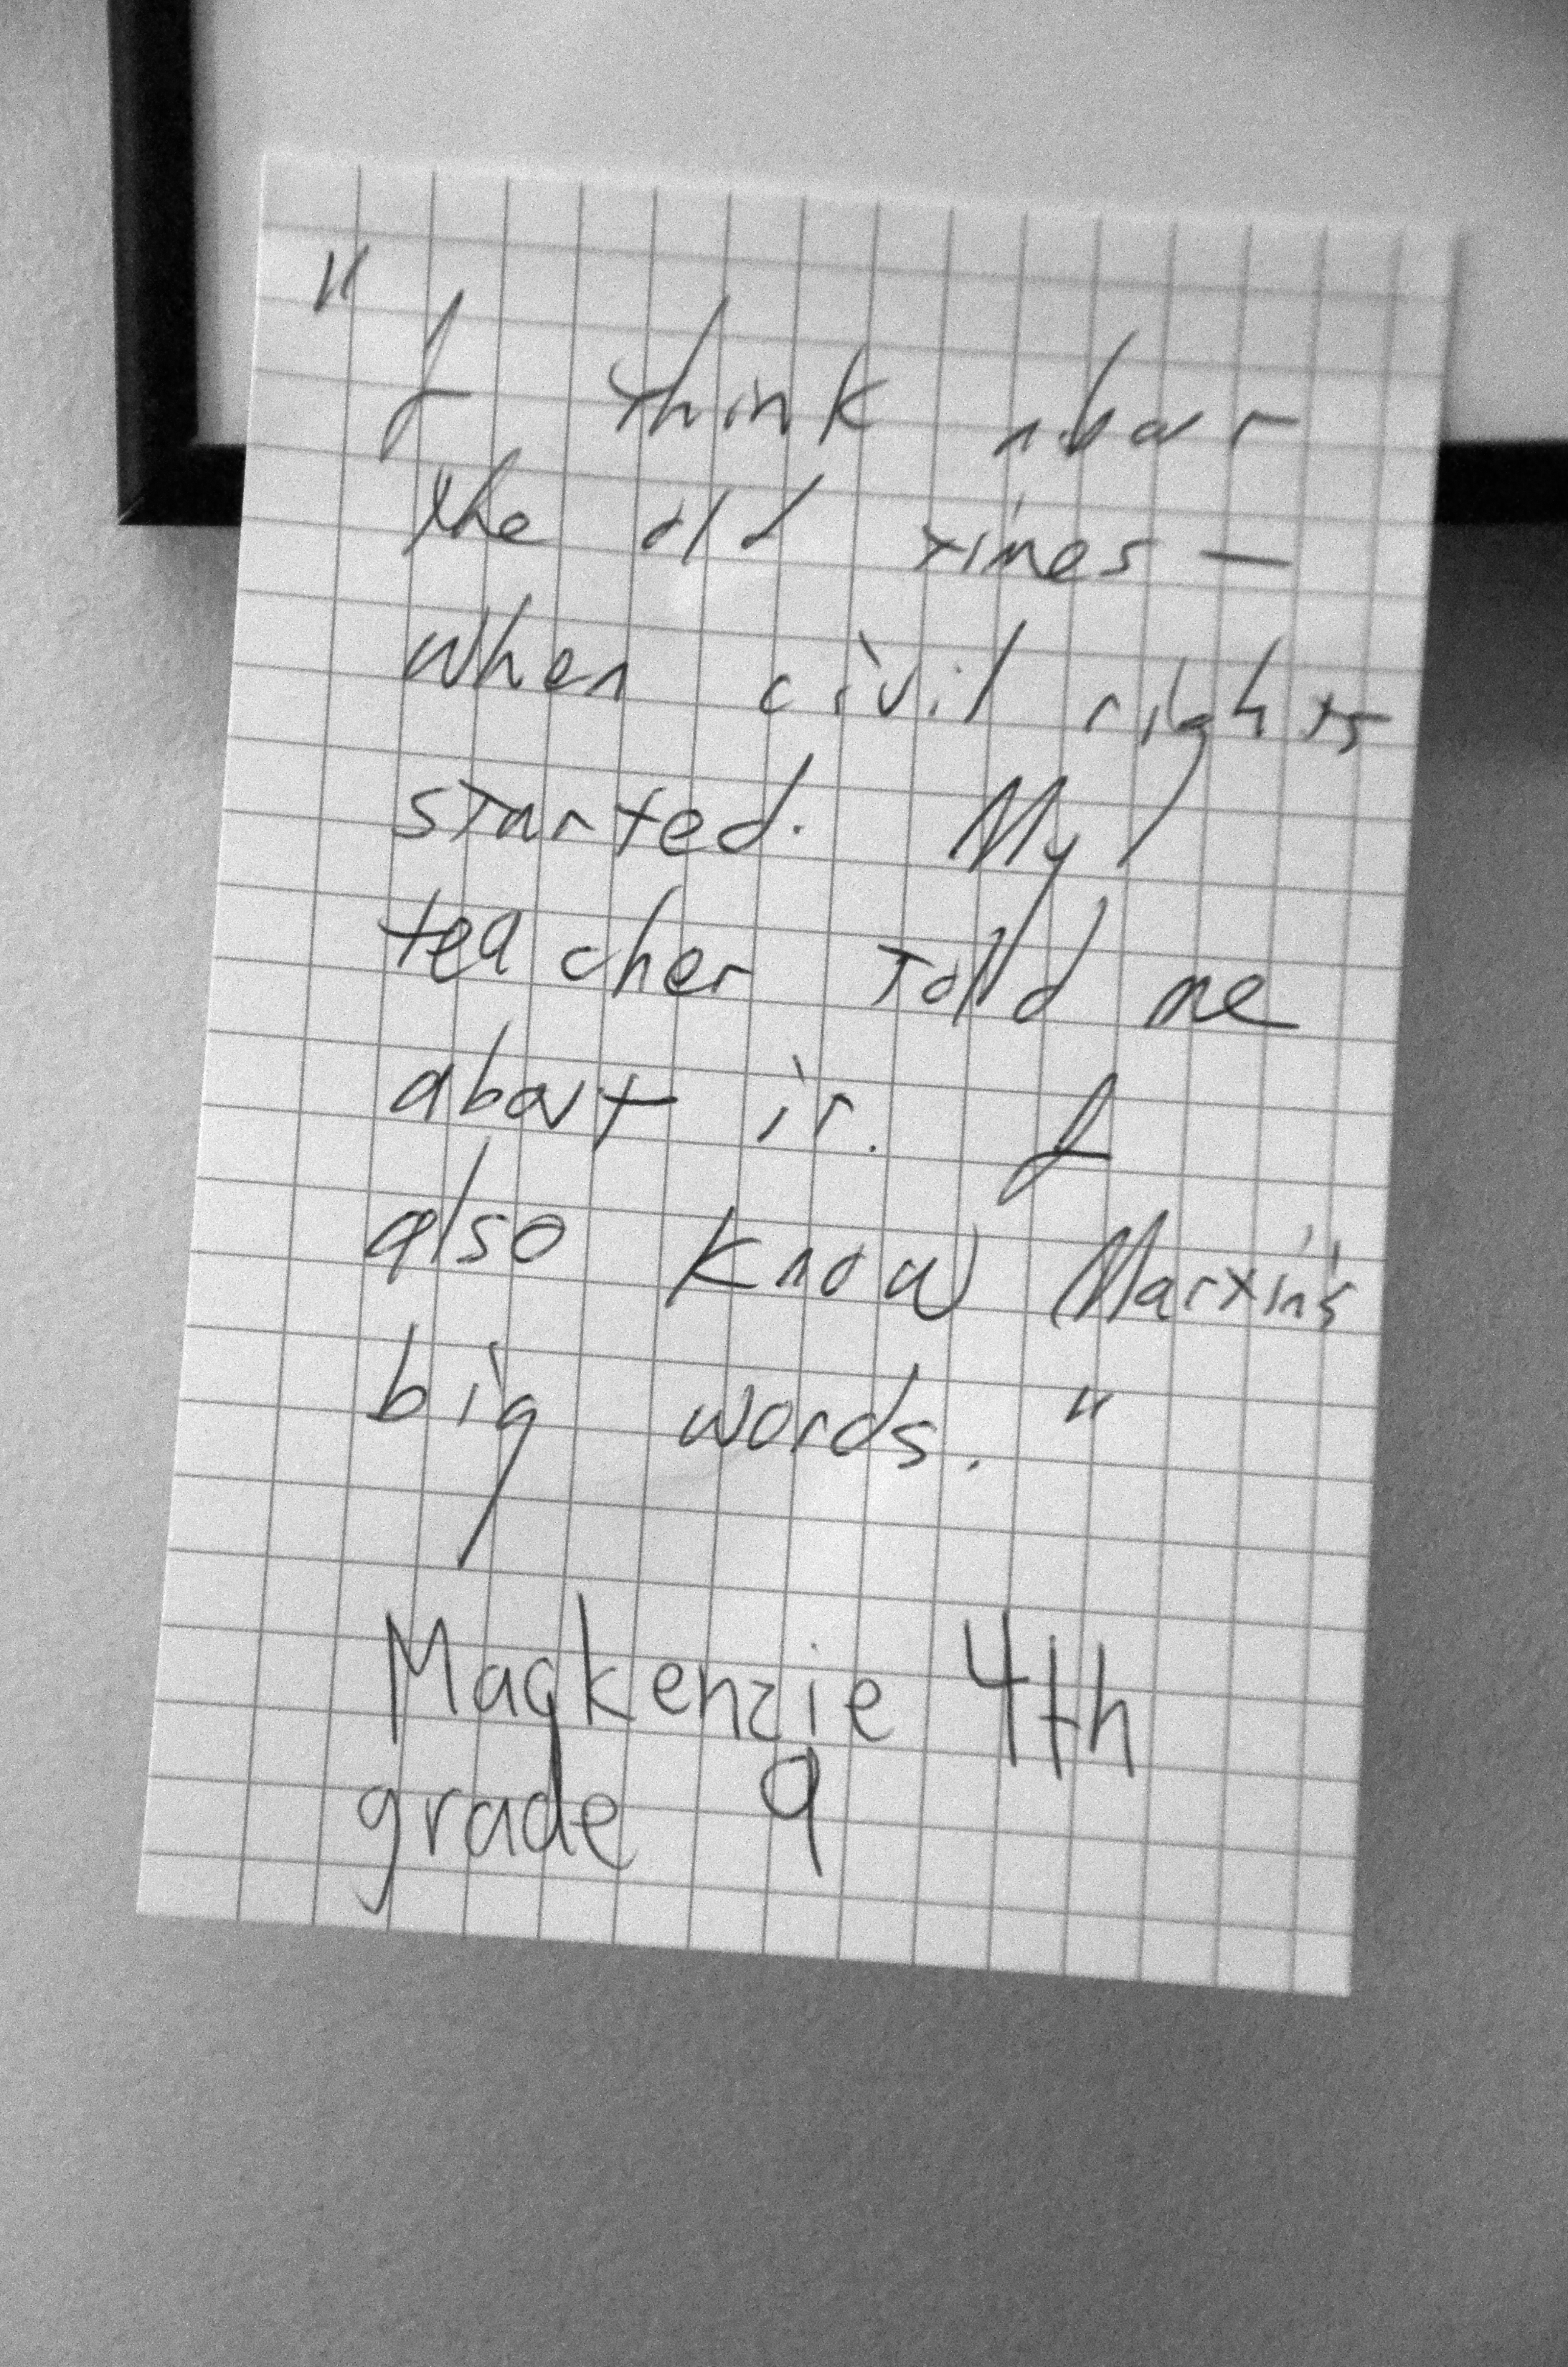 "I think about
the old times —
when civil rights
started. My
teacher told me
about it. I
also know Martin's
big words."
Mackenzie 4th
grade 9